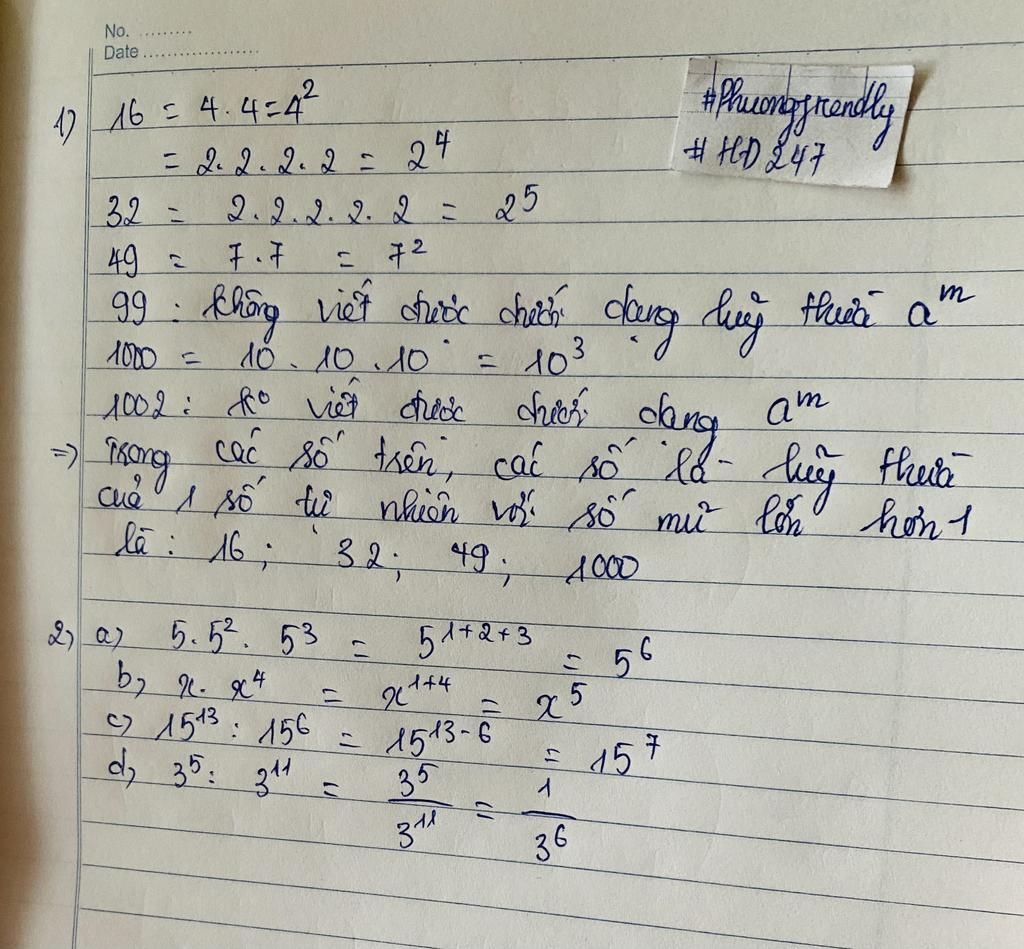 No. .........
Date ...................
#Phuongfriendly
# HD247
1) 16 = 4.4=4²
= 2.2.2.2 = 2⁴
32 = 2.2.2.2.2 = 2⁵
49 = 7.7 = 7²
99 : không viết được dưới dạng luỹ thừa aᵐ
1000 = 10.10.10 = 10³
1002 : ko viết được dưới dạng aᵐ
=> Trong các số trên, các số là luỹ thừa
của 1 số tự nhiên với số mũ lớn hơn 1
là : 16; 32; 49; 1000
2) a) 5.5².5³ = 5¹⁺²⁺³ = 5⁶
b) x.x⁴ = x¹⁺⁴ = x⁵
c) 15¹³ : 15⁶ = 15¹³⁻⁶ = 15⁷
d) 3⁵ : 3¹¹ = 3⁵/3¹¹ = 1/3⁶